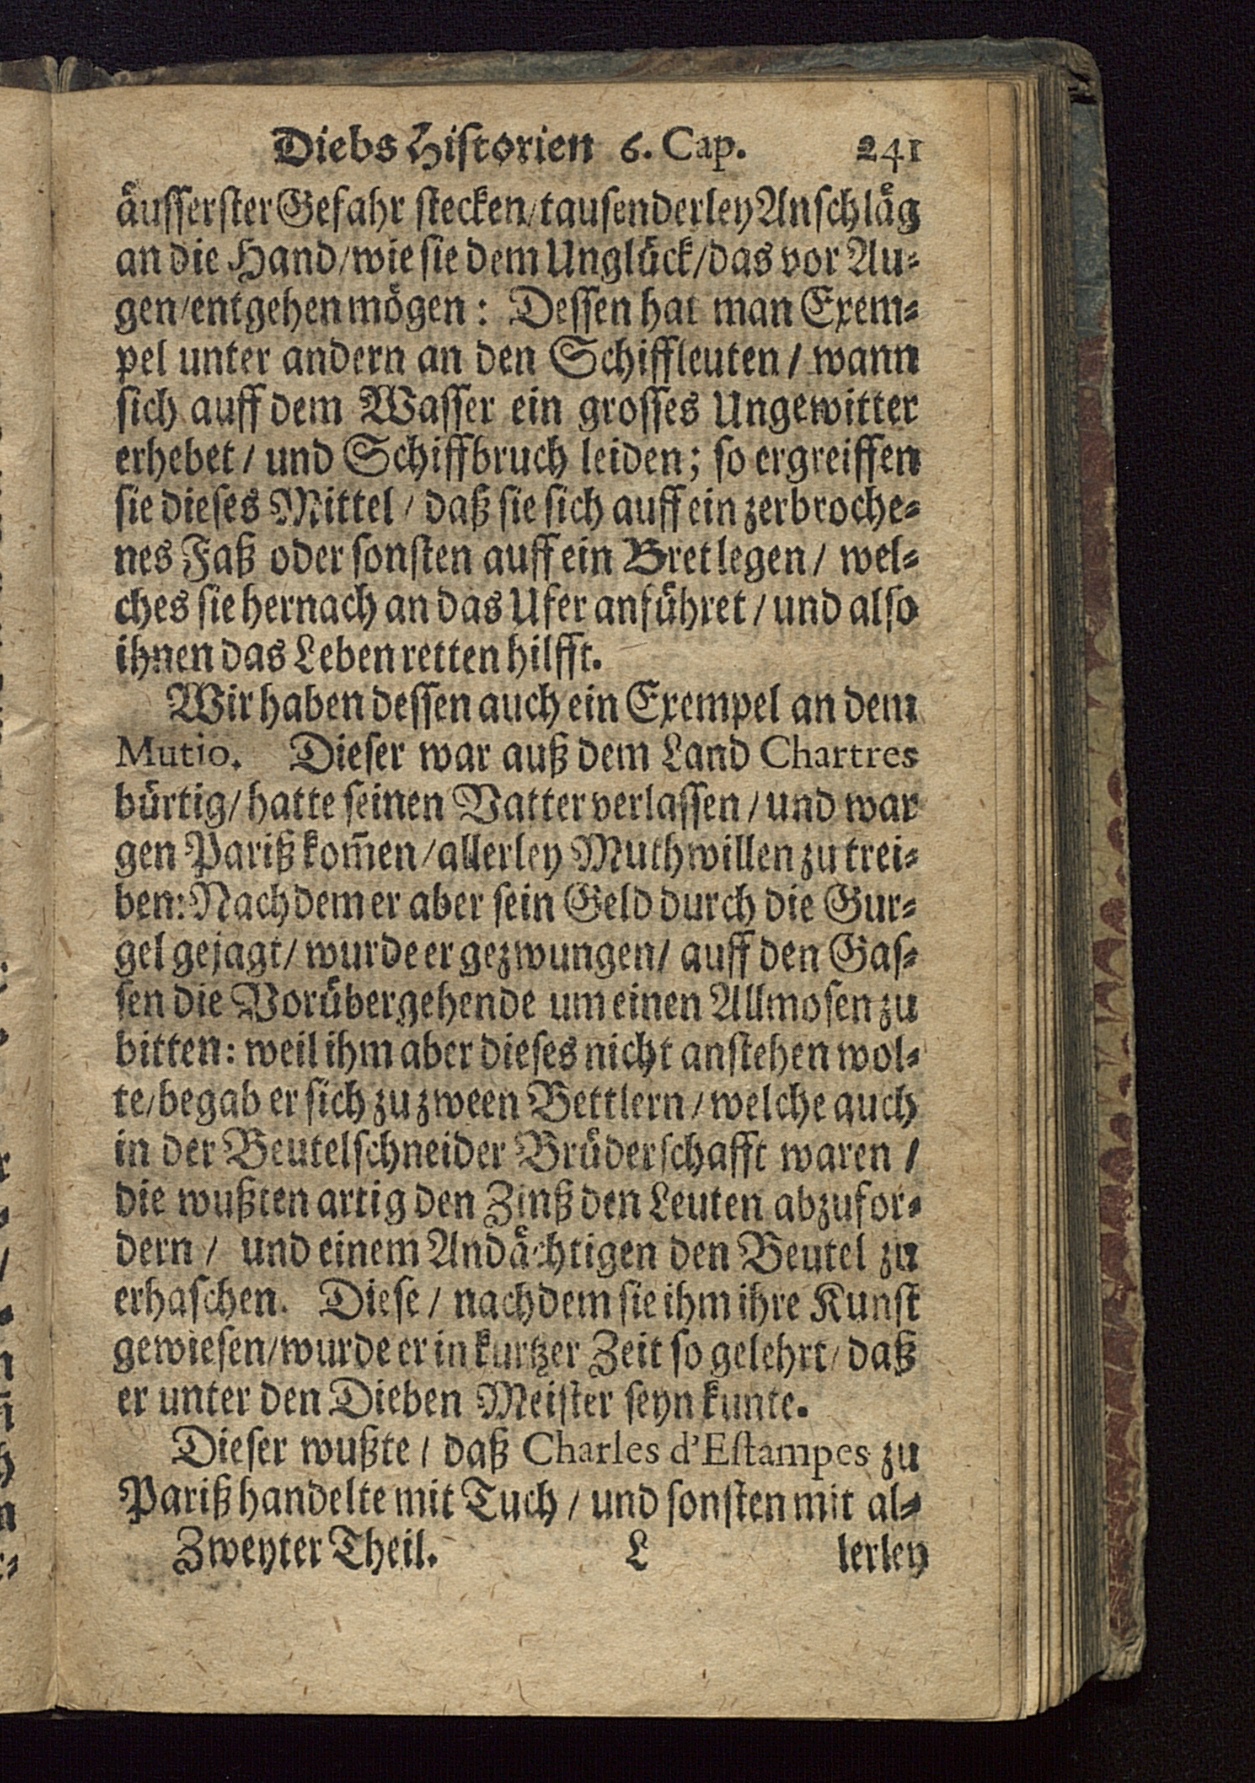 Diebs Historien 6. Cap. 241
äusserster Gefahr stecken/tausenderley Anschläg
an die Hand/wie sie dem Unglück/das vor Au-
gen/entgehen mögen: Dessen hat man Exem-
pel unter andern an den Schiffleuten / wann
sich auff dem Wasser ein grosses Ungewitter
erhebet / und Schiffbruch leiden; so ergreiffen
sie dieses Mittel / daß sie sich auff ein zerbroche-
nes Faß oder sonsten auff ein Bret legen / wel-
ches sie hernach an das Ufer anführet / und also
ihnen das Leben retten hilfft.
Wir haben dessen auch ein Exempel an dem
Mutio. Dieser war auß dem Land Chartres
bürtig/ hatte seinen Vatter verlassen / und war
gen Pariß kom̃en /allerley Muthwillen zu trei-
ben: Nachdem er aber sein Geld durch die Gur-
gel gejagt/ wurde er gezwungen/ auff den Gas-
sen die Vorübergehende um einen Allmosen zu
bitten: weil ihm aber dieses nicht anstehen wol-
te/begab er sich zu zween Bettlern / welche auch
in der Beutelschneider Brüderschafft waren /
die wußten artig den Zinß den Leuten abzufor-
dern / und einem Andächtigen den Beutel zu
erhaschen. Diese / nachdem sie ihm ihre Kunst
gewiesen/wurde er in kurtzer Zeit so gelehrt/ daß
er unter den Dieben Meister seyn kunte.
Dieser wußte / daß Charles d'Estampes zu
Pariß handelte mit Tuch / und sonsten mit al-
Zweyter Theil. L lerley